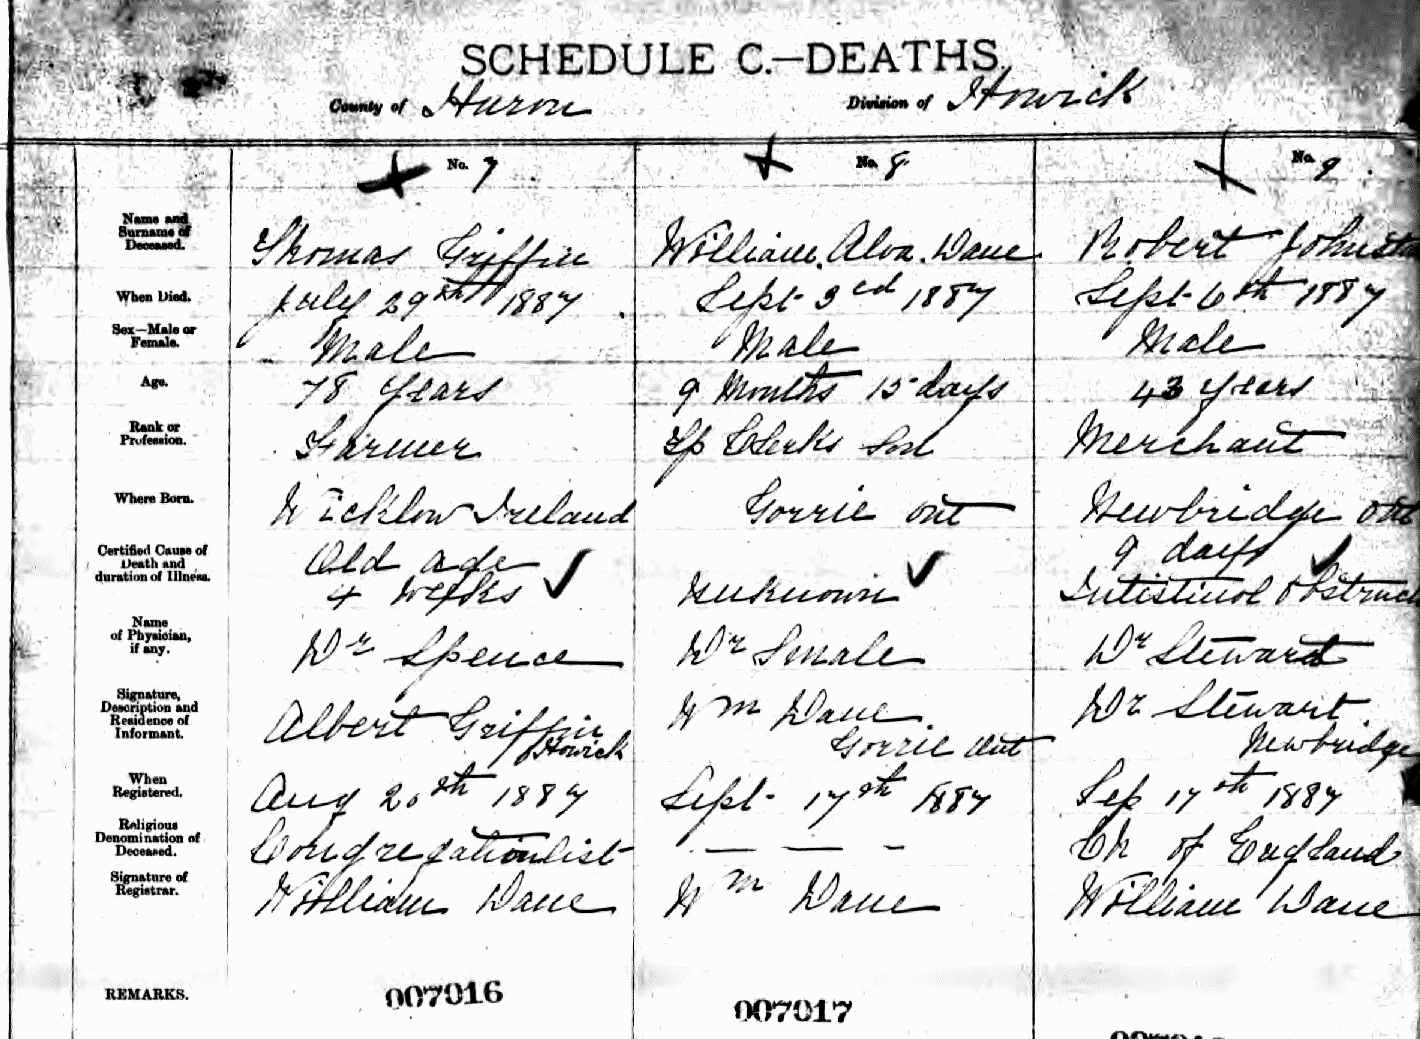 SCHEDULE C.—DEATHS.
County of Huron Division of Howick
No. 7 No. 8 No. 9
Name and Surname of Deceased. Thomas Griffin William. Alva. Dane Robert Johnston
When Died. July 29th 1887 Sept 3rd 1887 Sept 6th 1887
Sex—Male or Female. Male Male Male
Age. 78 Years 9 Months 15 days 43 Years
Rank or Profession. Farmer Tp Clerks Son Merchant
Where Born. Wicklow Ireland Gorrie Ont Newbridge Ont
Certified Cause of Death and duration of Illness. Old age 9 days
4 weeks Unknown Intistinol Obstruc
Name of Physician, if any. Dr Spence Dr Smale Dr Steward
Signature, Description and Residence of Informant. Albert Griffin Wm Dane. Dr Stewart.
Howick Gorrie Ont Newbridge
When Registered. Aug 20th 1887 Sept 17th 1887 Sep 17th 1887
Religious Denomination of Deceased. Congregationalist — — - Ch of England
Signature of Registrar. William Dane Wm Dane William Dane
REMARKS. 007016 007017